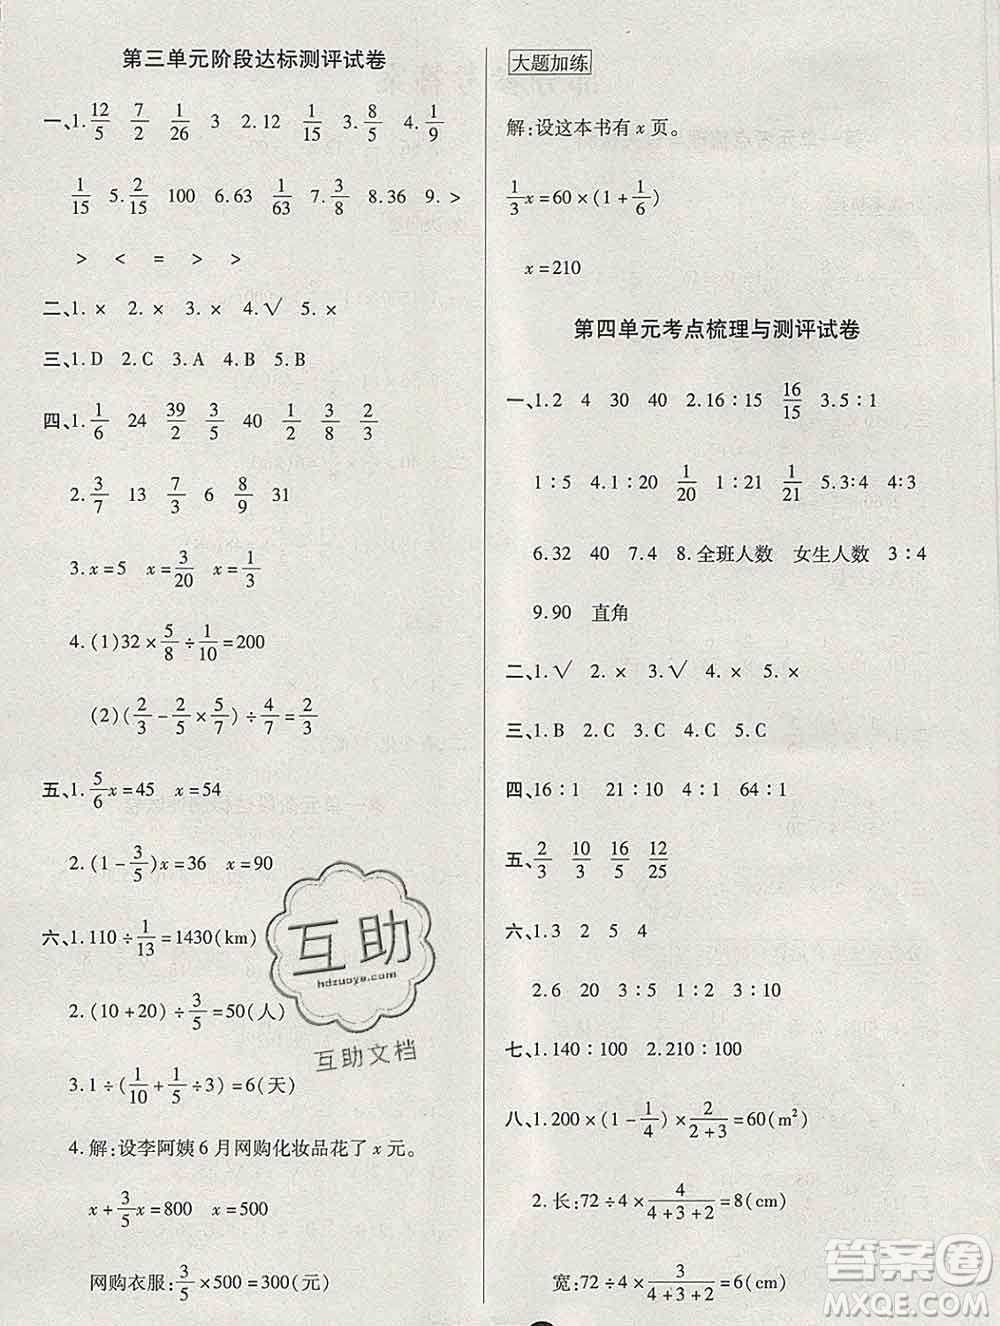 第三单元阶段达标测评试卷
一、1. 12/5 7/2 1/26 3 2.12 1/15 3. 5/8 4. 1/9
1/15 5. 2/15 100 6.63 1/63 7. 3/8 8.36 9. >
> < = > >
二、1. × 2. × 3. × 4. √ 5. ×
三、1. D 2. C 3. A 4. B 5. B
四、1. 1/6 24 39/2 3/5 40 1/2 3/4 2/3
2. 3/7 13 7/3 6 8/9 31
3. x=5 x=3/20 x=1/3
4. (1)32×5/8÷1/10=200
(2)(2/3-2/5×5/7)÷4/7=2/3
五、1. 5/6x=45 x=54
2. (1-3/5)x=36 x=90
六、1. 110÷1/13=1430(km)
2. (10+20)÷3/5=50(人)
3. 1÷(1/10+1/5÷3)=6(天)
4. 解:设李阿姨6月网购化妆品花了x元。
x+3/5x=800 x=500
网购衣服:3/5×500=300(元)
大题加练
解:设这本书有x页。
1/3x=60×(1+1/6)
x=210
第四单元考点梳理与测评试卷
一、1.2 4 30 40 2.16∶15 16/15 3.5∶1
1∶5 4.1∶20 1/20 1∶21 1/21 5.3∶4 4∶3
6.32 40 7.4 8.全班人数 女生人数 3∶4
9.90 直角
二、1. √ 2. × 3. √ 4. × 5. ×
三、1. B 2. C 3. C 4. C 5. C
四、16∶1 3∶2 4∶1 64∶1
五、2/3 10/3 16/5 16/25
六、1.3 2 5 4
2.6 20 3∶5 1∶2 3∶10
七、1.140∶100 2.210∶100
八、1.200×(1-1/4)×2/(2+3)=60(m²)
2.长:72÷4×4/(4+3+2)=8(cm)
宽:72÷4×3/(4+3+2)=6(cm)
互助
hdzuoye.com
互助文档
答案圈
MXQE.COM